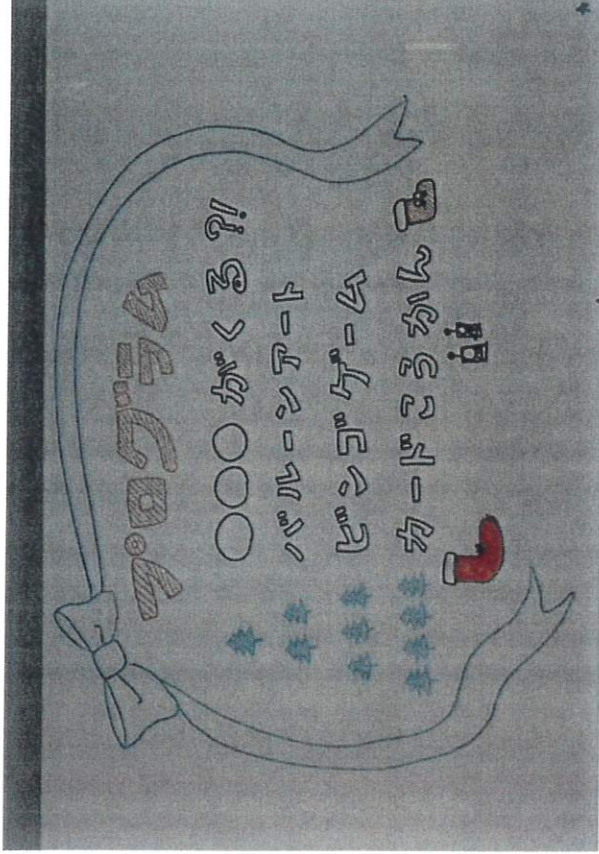 プログラム
○○○がくる?!
バルーンアート
ビンゴゲーム
カードこうかん